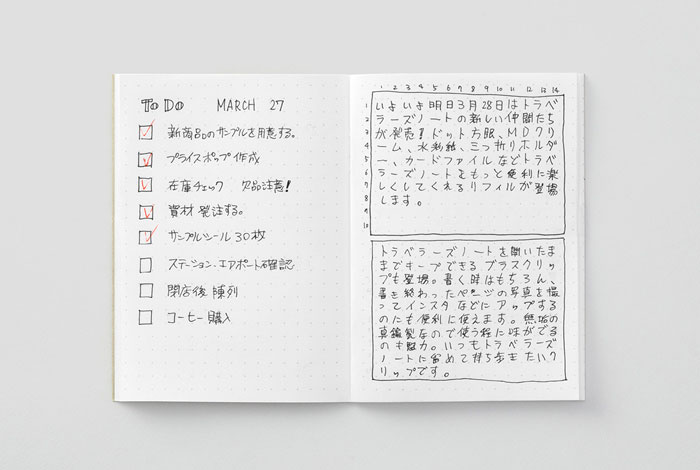 To Do MARCH 27
新商品のサンプルを用意する。
プライスポップ作成
在庫チェック 欠品注意!
資材 発注する。
サンプルシール 30枚
ステーション、エアポート確認
閉店後 陳列
コーヒー購入
1 2 3 4 5 6 7 8 9 10 11 12 13 14
1 いよいよ明日3月28日はトラベ
2 ラーズノートの新しい仲間たち
3 が発売!ドット方眼、MDクリ
4 ーム、水彩紙、三つ折りホルダ
5 ー、カードファイルなどトラベ
6 ラーズノートをもっと便利に楽
7 しくしてくれるリフィルが登場
8 します。
9
10
トラベラーズノートを開いたま
までキープできるブラスクリッ
プも登場。書く時はもちろん、
書き終わったページの写真を撮
ってインスタなどにアップする
のにも便利に使えます。無垢の
真鍮製なので使う程に味がでる
のも魅力。いつもトラベラーズ
ノートに留めて持ち歩きたいク
リップです。